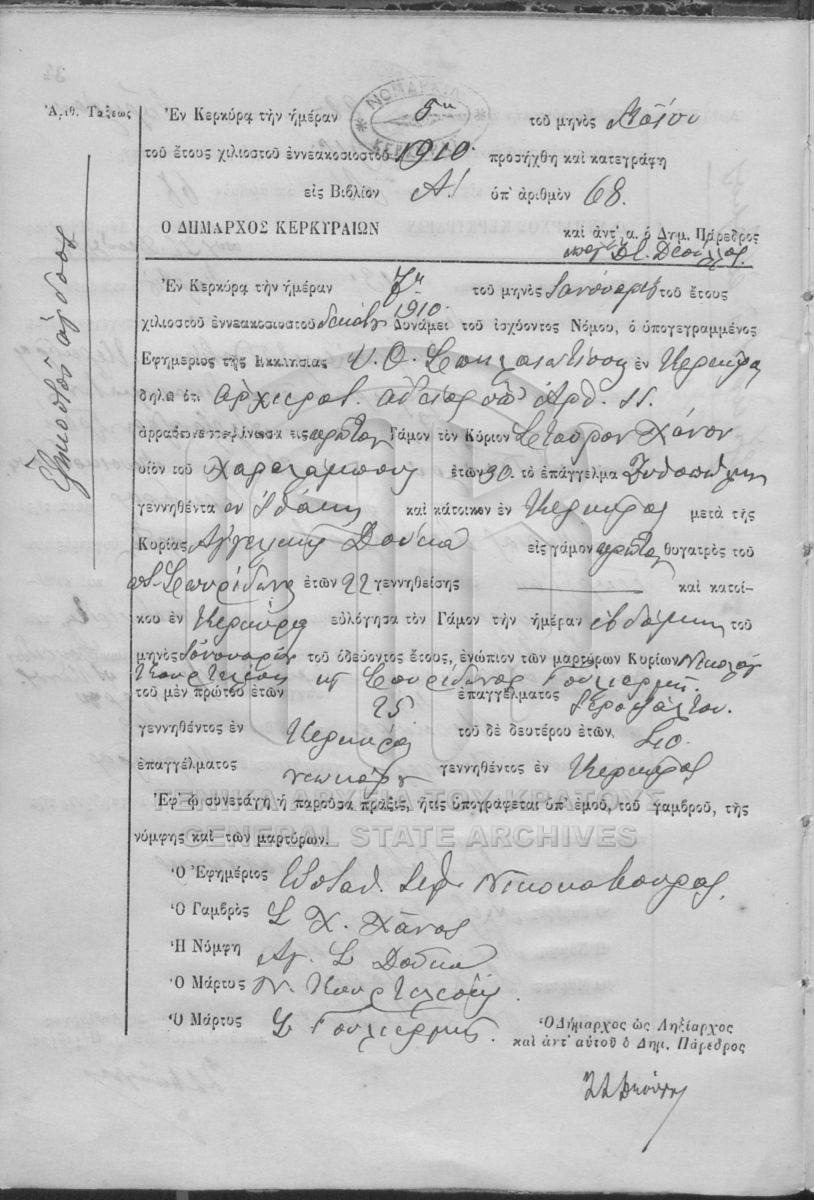 Ἀριθ. Τάξεως
Ἑξηκοστὸν ὄγδοον
ΝΟΜΑΡΧΙΑ ΚΕΡΚΥΡΑΣ
Ἐν Κερκύρᾳ τὴν ἡμέραν 5ην τοῦ μηνὸς Μαΐου
τοῦ ἔτους χιλιοστοῦ ἐννεακοσιοστοῦ 1910 προσήχθη καὶ κατεγράφη
εἰς Βιβλίον Α! ὑπ' ἀριθμὸν 68.
Ο ΔΗΜΑΡΧΟΣ ΚΕΡΚΥΡΑΙΩΝ καὶ ἀντ' α. ὁ Δημ. Πάρεδρος
Ἐν Κερκύρᾳ τὴν ἡμέραν 7ην τοῦ μηνὸς Ἰανουαρίου τοῦ ἔτους
1910.
χιλιοστοῦ ἐννεακοσιοστοῦ δεκάτου Δυνάμει τοῦ ἰσχύοντος Νόμου, ὁ ὑπογεγραμμένος
Ἐφημέριος τῆς Ἐκκλησίας Υ. Θ. Σπηλαιωτίσσης ἐν Κερκύρᾳ
δηλῶ ὅτι ἀρχιερατ. ἀδείας ὑπ' Ἀριθ. 11.
ἀρραβωνεστεφάνωσα εἰς πρῶτον Γάμον τὸν Κύριον Σταῦρον Χάνον
υἱὸν τοῦ Χαραλάμπους ἐτῶν 30. τὸ ἐπάγγελμα Ζυθοπώλην
γεννηθέντα ἐν Ἰθάκῃ καὶ κάτοικον ἐν Κερκύρᾳ μετὰ τῆς
Κυρίας Ἀγγελικῆς Δούκα εἰς γάμον πρῶτον θυγατρὸς τοῦ
Σπυρίδωνος ἐτῶν 22 γεννηθείσης καὶ κατοί-
κου ἐν Κερκύρᾳ εὐλόγησα τὸν Γάμον τὴν ἡμέραν ἑβδόμην τοῦ
μηνὸς Ἰανουαρίου τοῦ ὁδεύοντος ἔτους, ἐνώπιον τῶν μαρτύρων Κυρίων Νικολάου
Κουρτελέση κ Σπυρίδωνος Γουλιέρμη.
τοῦ μὲν πρώτου ἐτῶν 25 ἐπαγγέλματος Ἱεροψάλτου.
γεννηθέντος ἐν Κερκύρᾳ τοῦ δὲ δευτέρου ἐτῶν
ἐπαγγέλματος γεννηθέντος ἐν Κερκύρᾳ
Ἐφ' ᾧ συνετάγη ἡ παροῦσα πρᾶξις, ἥτις ὑπογράφεται ὑπ' ἐμοῦ, τοῦ γαμβροῦ, τῆς
νύμφης καὶ τῶν μαρτύρων.
ΓΕΝΙΚΑ ΑΡΧΕΙΑ ΤΟΥ ΚΡΑΤΟΥΣ
GENERAL STATE ARCHIVES
Ὁ Ἐφημέριος Εὐσταθ. Ἱερ.
Ὁ Γαμβρὸς Σ Χ. Χάνος
Ἡ Νύμφη Αγ. Σ Δούκα
Ὁ Μάρτυς Ν. Κουρτελέσης.
Ὁ Μάρτυς Σ Γουλιέρμης.
Ὁ Δήμαρχος ὡς Ληξίαρχος
καὶ ἀντ' αὐτοῦ ὁ Δημ. Πάρεδρος